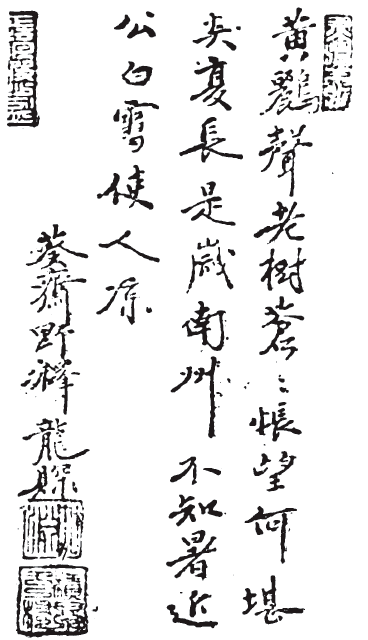 黃鸝聲老樹蒼〻悵望何堪
炎夏長是歲南州不知暑近
公白雪使人凉
葵齋野龍